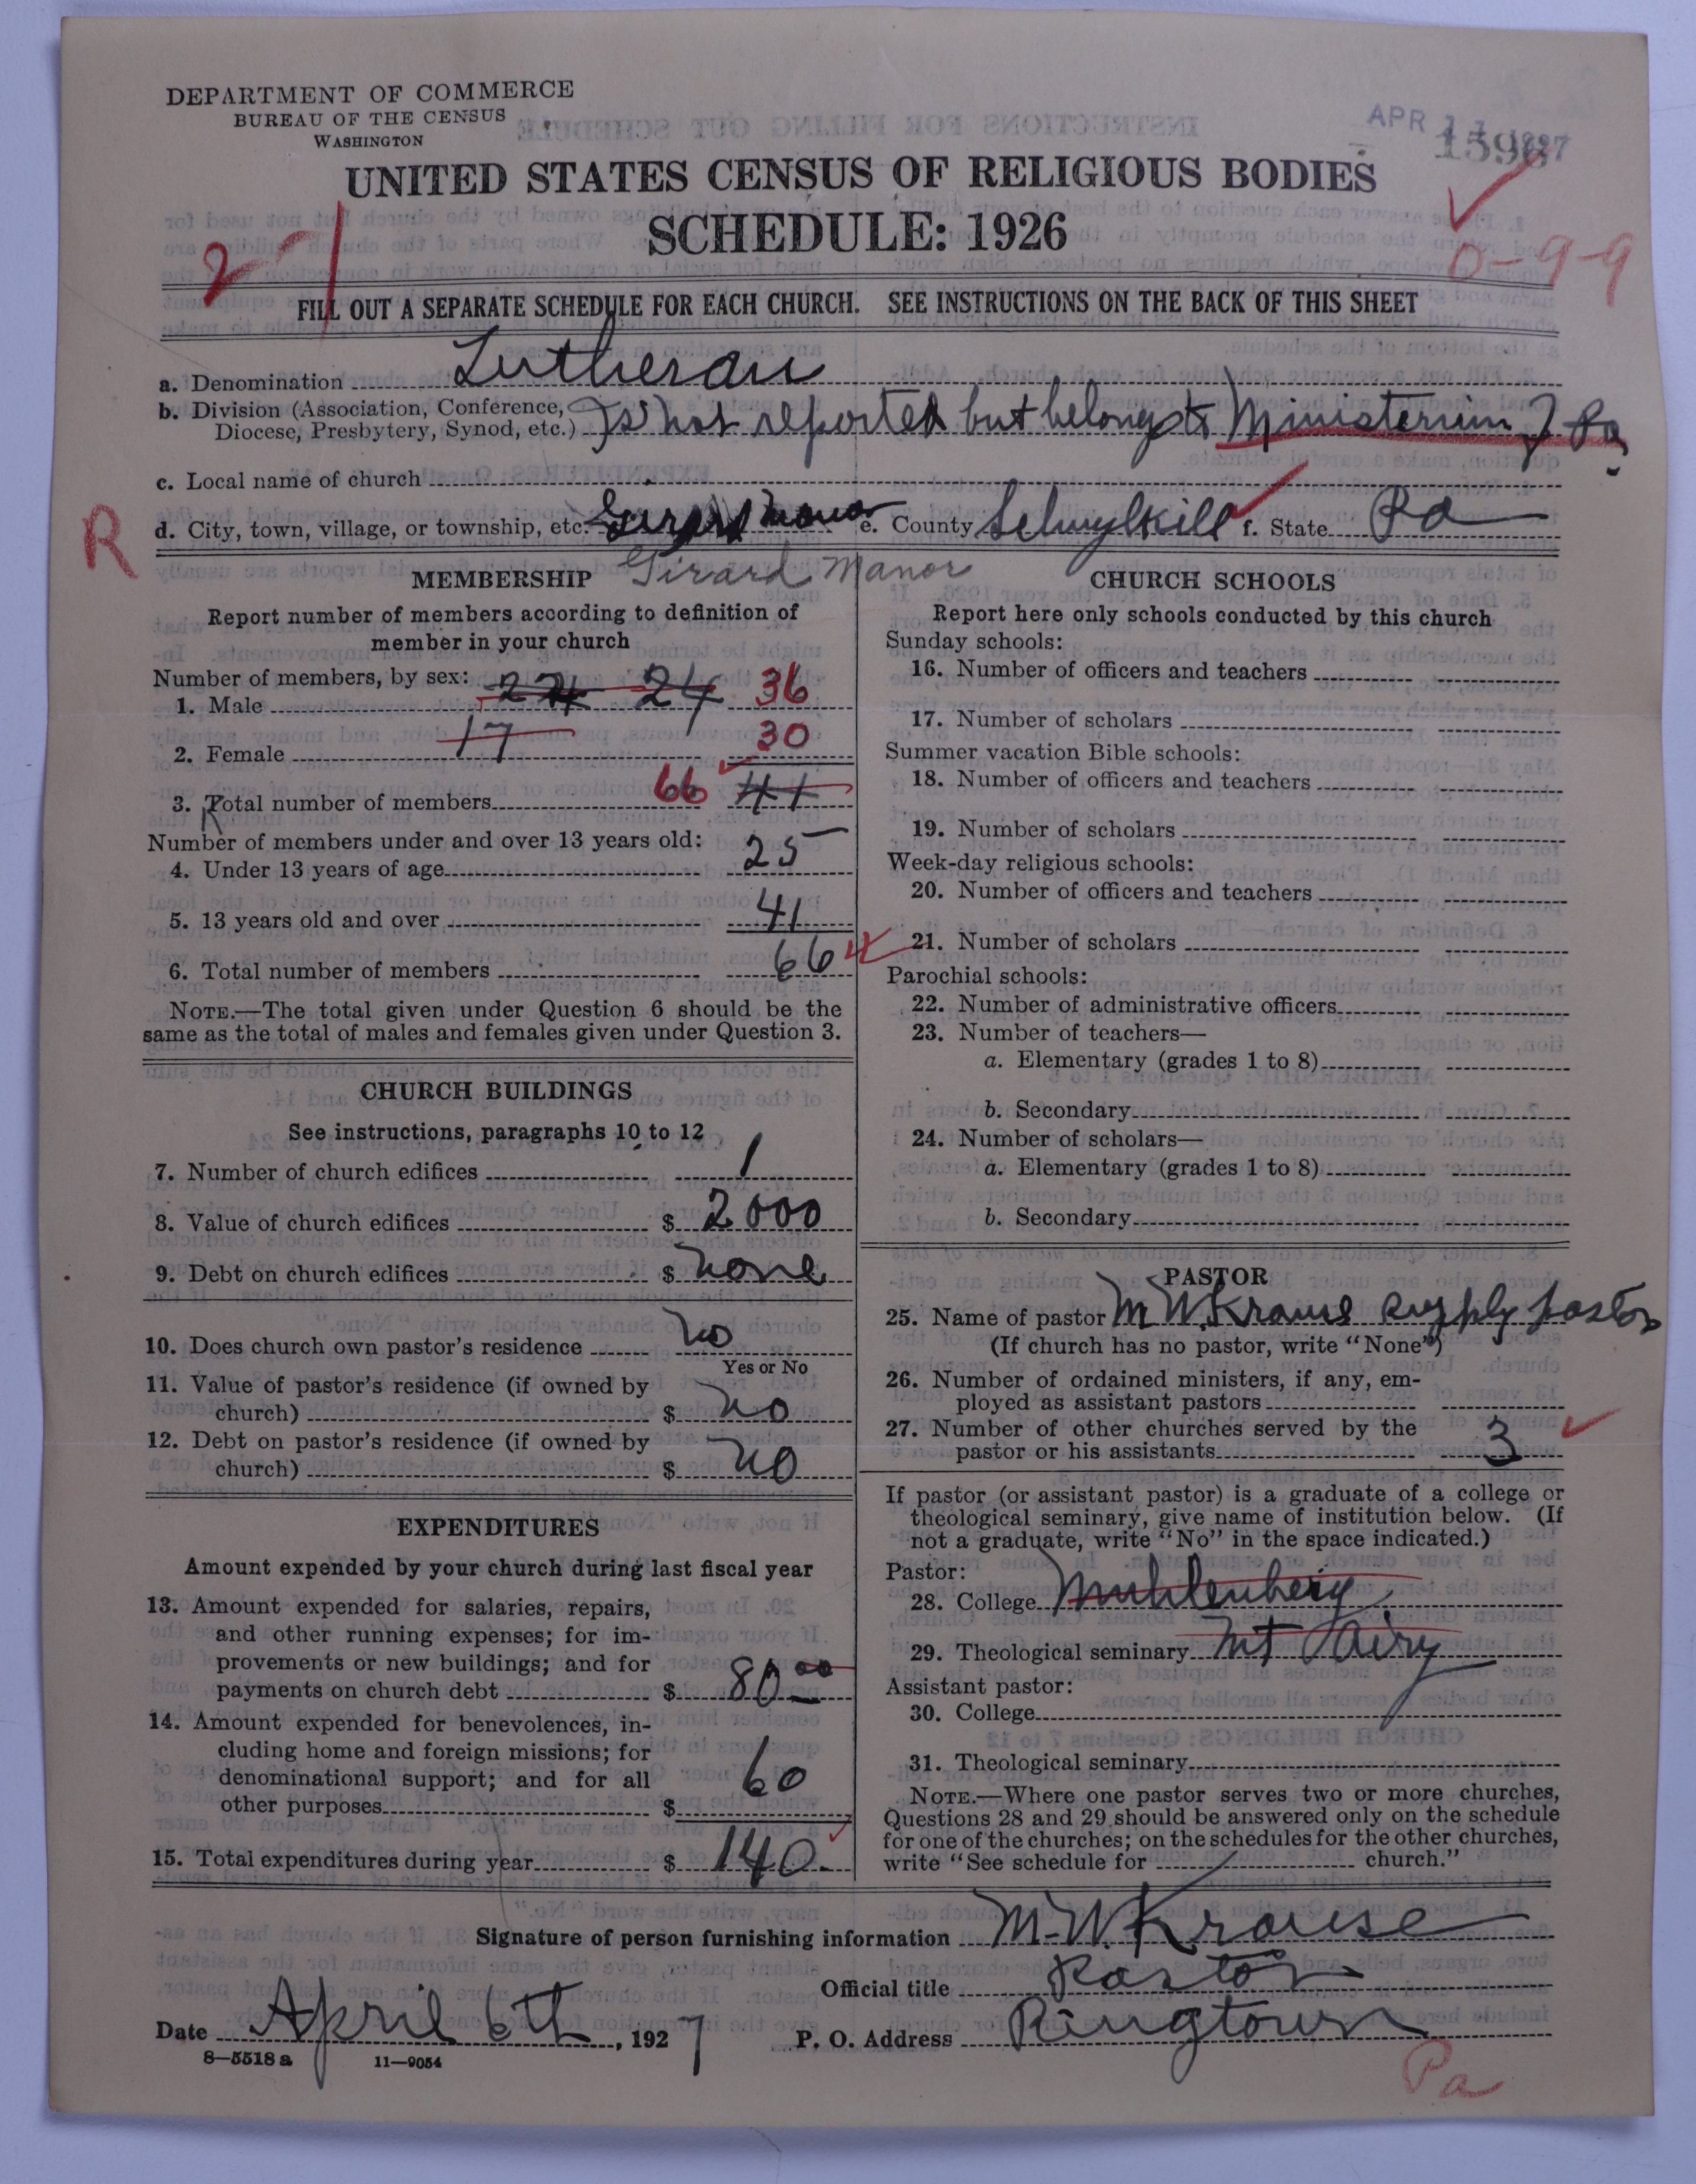 DEPARTMENT OF COMMERCE
BUREAU OF THE CENSUS
WASHINGTON
APR 11 1927
UNITED STATES CENSUS OF RELIGIOUS BODIES
SCHEDULE: 1926
2-1
0-9-9
FILL OUT A SEPARATE SCHEDULE FOR EACH CHURCH. SEE INSTRUCTIONS ON THE BACK OF THIS SHEET
a. Denomination Lutheran
b. Division (Association, Conference, Diocese, Presbytery, Synod, etc.) Is not reported but belongs to Ministerium of Pa
c. Local name of church
R
d. City, town, village, or township, etc. Girard Manor e. County Schuylkill f. State Pa
Girard Manor
MEMBERSHIP
Report number of members according to definition of
member in your church
Number of members, by sex:
1. Male 24 24 36
2. Female 17 30
3. Total number of members 66 41
Number of members under and over 13 years old:
4. Under 13 years of age 25
5. 13 years old and over 41
6. Total number of members 66
NOTE.—The total given under Question 6 should be the
same as the total of males and females given under Question 3.
CHURCH BUILDINGS
See instructions, paragraphs 10 to 12
7. Number of church edifices 1
8. Value of church edifices $ 2000
9. Debt on church edifices $ none
10. Does church own pastor's residence no
Yes or No
11. Value of pastor's residence (if owned by
church) $ no
12. Debt on pastor's residence (if owned by
church) $ no
EXPENDITURES
Amount expended by your church during last fiscal year
13. Amount expended for salaries, repairs,
and other running expenses; for im-
provements or new buildings; and for
payments on church debt $ 80 00
14. Amount expended for benevolences, in-
cluding home and foreign missions; for
denominational support; and for all
other purposes $ 60
15. Total expenditures during year $ 140.
CHURCH SCHOOLS
Report here only schools conducted by this church
Sunday schools:
16. Number of officers and teachers
17. Number of scholars
Summer vacation Bible schools:
18. Number of officers and teachers
19. Number of scholars
Week-day religious schools:
20. Number of officers and teachers
21. Number of scholars
Parochial schools:
22. Number of administrative officers
23. Number of teachers—
a. Elementary (grades 1 to 8)
b. Secondary
24. Number of scholars—
a. Elementary (grades 1 to 8)
b. Secondary
PASTOR
25. Name of pastor M W. Krause supply pastor
(If church has no pastor, write "None")
26. Number of ordained ministers, if any, em-
ployed as assistant pastors
27. Number of other churches served by the
pastor or his assistants 3
If pastor (or assistant pastor) is a graduate of a college or
theological seminary, give name of institution below. (If
not a graduate, write "No" in the space indicated.)
Pastor:
28. College Muhlenberg
29. Theological seminary Mt Airy
Assistant pastor:
30. College
31. Theological seminary
NOTE.—Where one pastor serves two or more churches,
Questions 28 and 29 should be answered only on the schedule
for one of the churches; on the schedules for the other churches,
write "See schedule for church."
Signature of person furnishing information M. W. Krause
Official title Pastor
Date April 6th, 1927 P. O. Address Ringtown
Pa
8—5518 a 11—9054